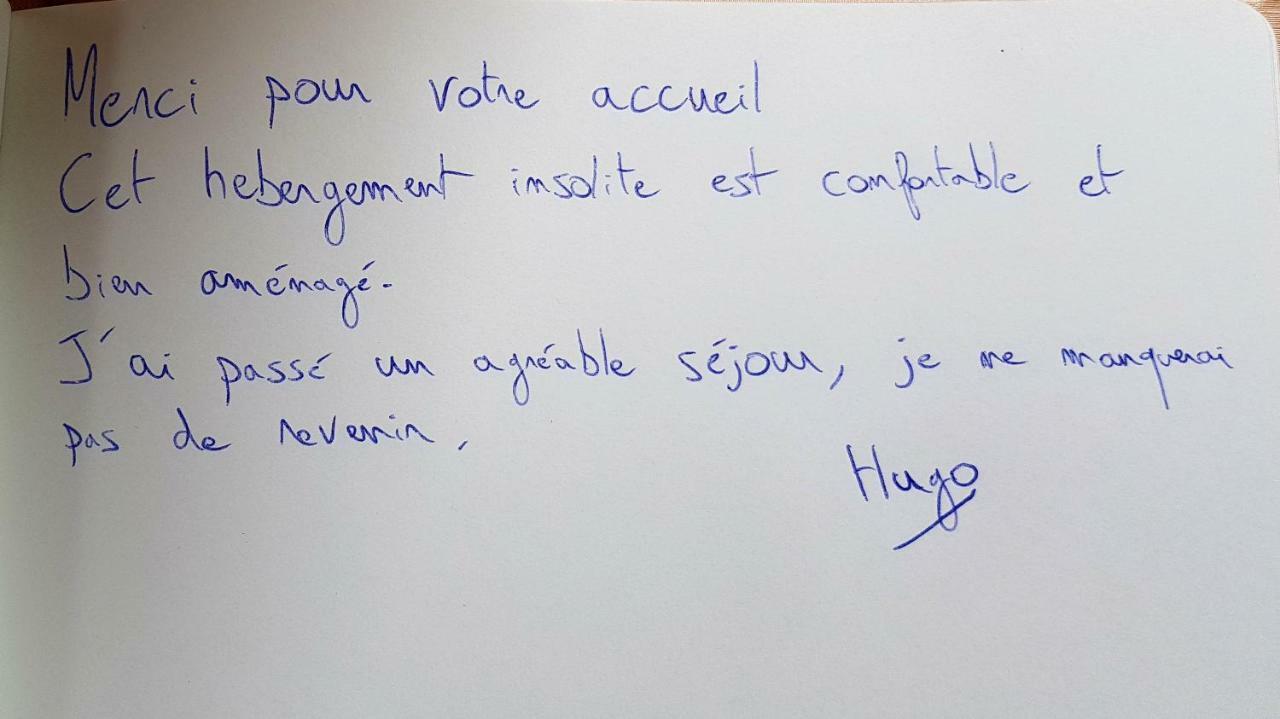 Merci pour votre accueil
Cet hebergement insolite est confortable et
bien aménagé.
J'ai passé un agréable séjour, je ne manquerai
pas de revenir.
Hugo